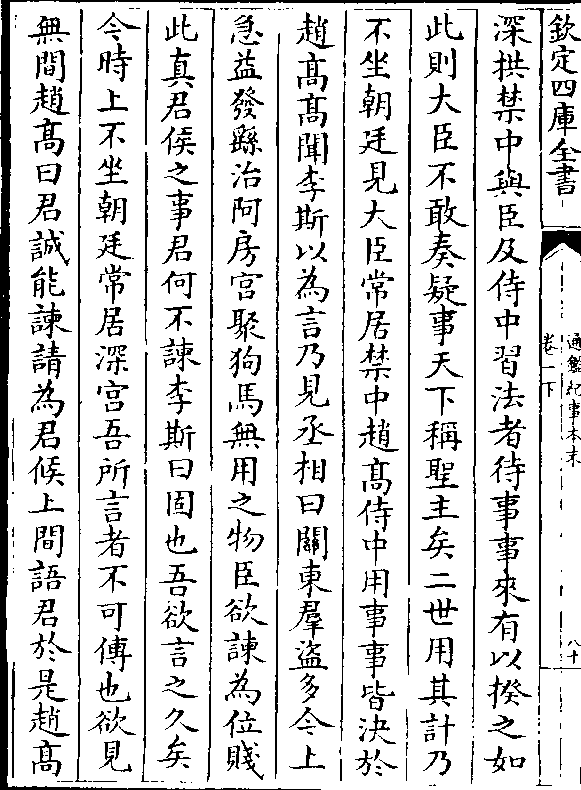 欽定四庫全書
通鑑紀事本末
卷一下
八十
深拱禁中與臣及侍中習法者待事事來有以揆之如
此則大臣不敢奏疑事天下稱聖主矣二世用其計乃
不坐朝廷見大臣常居禁中趙高侍中用事事皆決於
趙髙髙聞李斯以為言乃見丞相曰關東羣盜多今上
急益發繇治阿房宫聚狗馬無用之物臣欲諫為位賤
此真君侯之事君何不諫李斯曰固也吾欲言之久矣
今時上不坐朝廷常居深宫吾所言者不可傳也欲見
無間趙髙曰君誠能諫請為君候上間語君於是趙髙